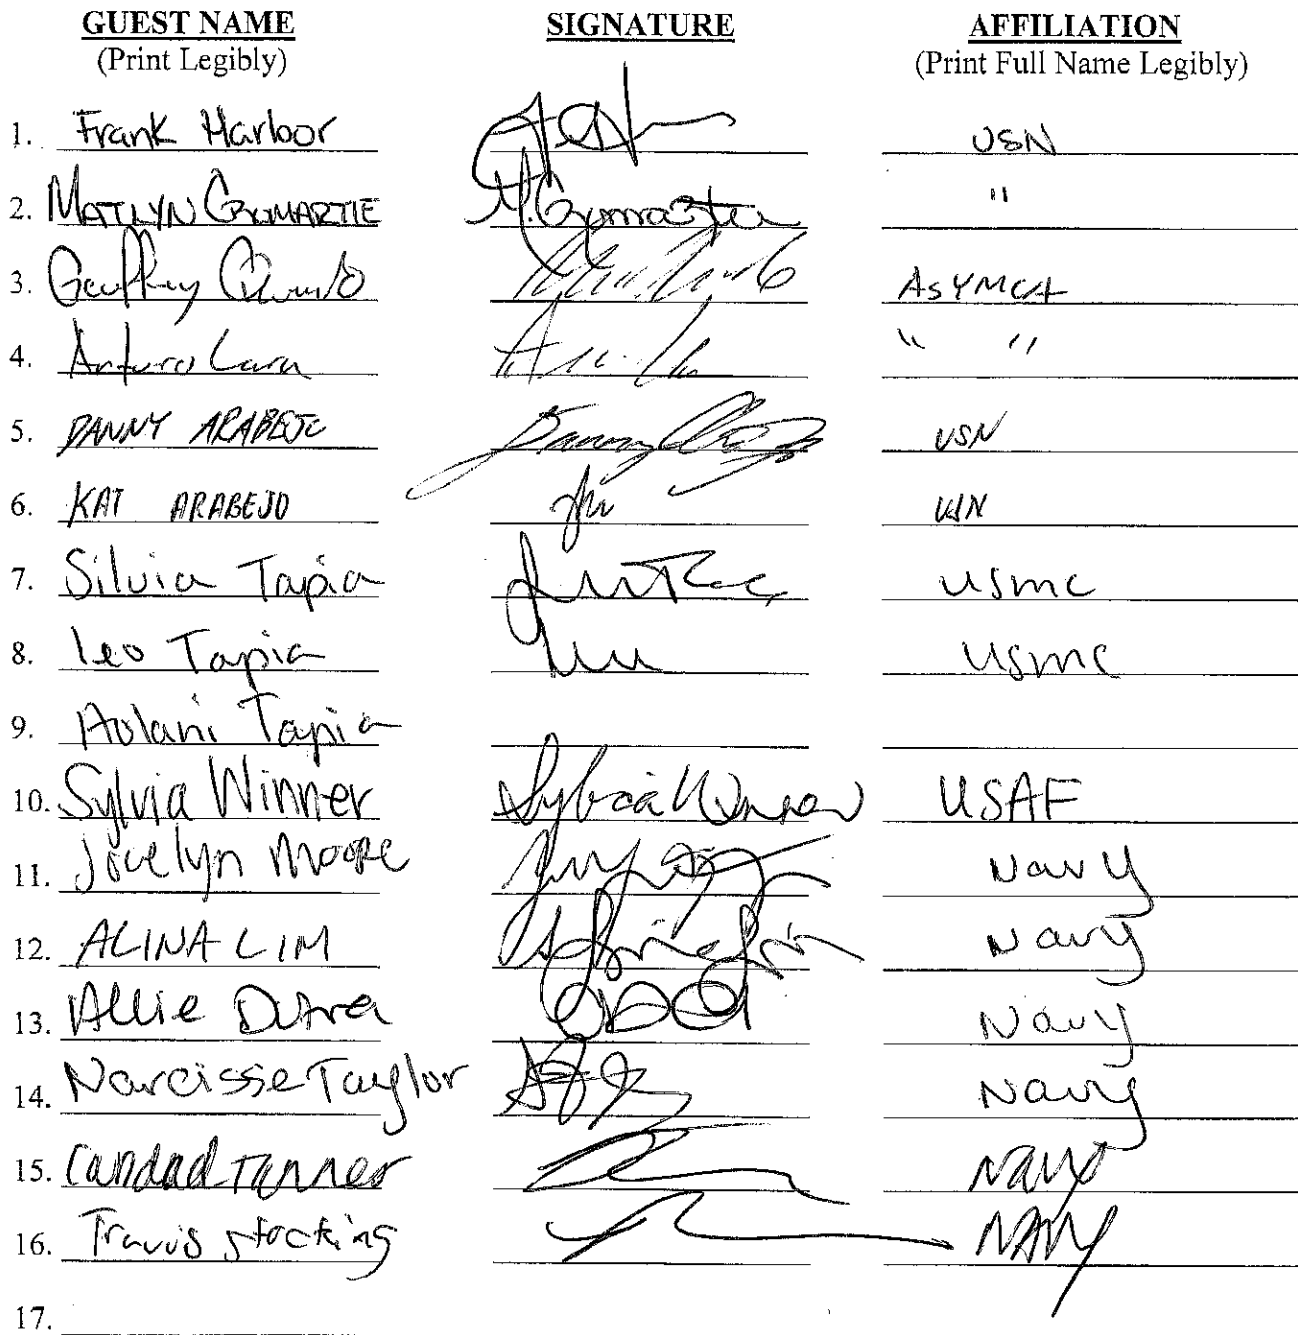 GUEST NAME SIGNATURE AFFILIATION
(Print Legibly) (Print Full Name Legibly)
1. Frank Harbor USN
2. MATILYN CROMARTIE M. Cromartie "
3. Geoffrey ASYMCA
4. Arturo Lara " "
5. DANNY ARABEJO Danny USN
6. KAT ARABEJO USN
7. Silvia Tapia usmc
8. Leo Tapia usmc
9. Aolani Tapia
10. Sylvia Winner Sylvia Winner USAF
11. Jocelyn Moore Navy
12. ALINA LIM Alina Lim Navy
13. Allie Dutra Navy
14. Narcisse Taylor Navy
15. Tanner Navy
16. Travis stocking NAVY
17.